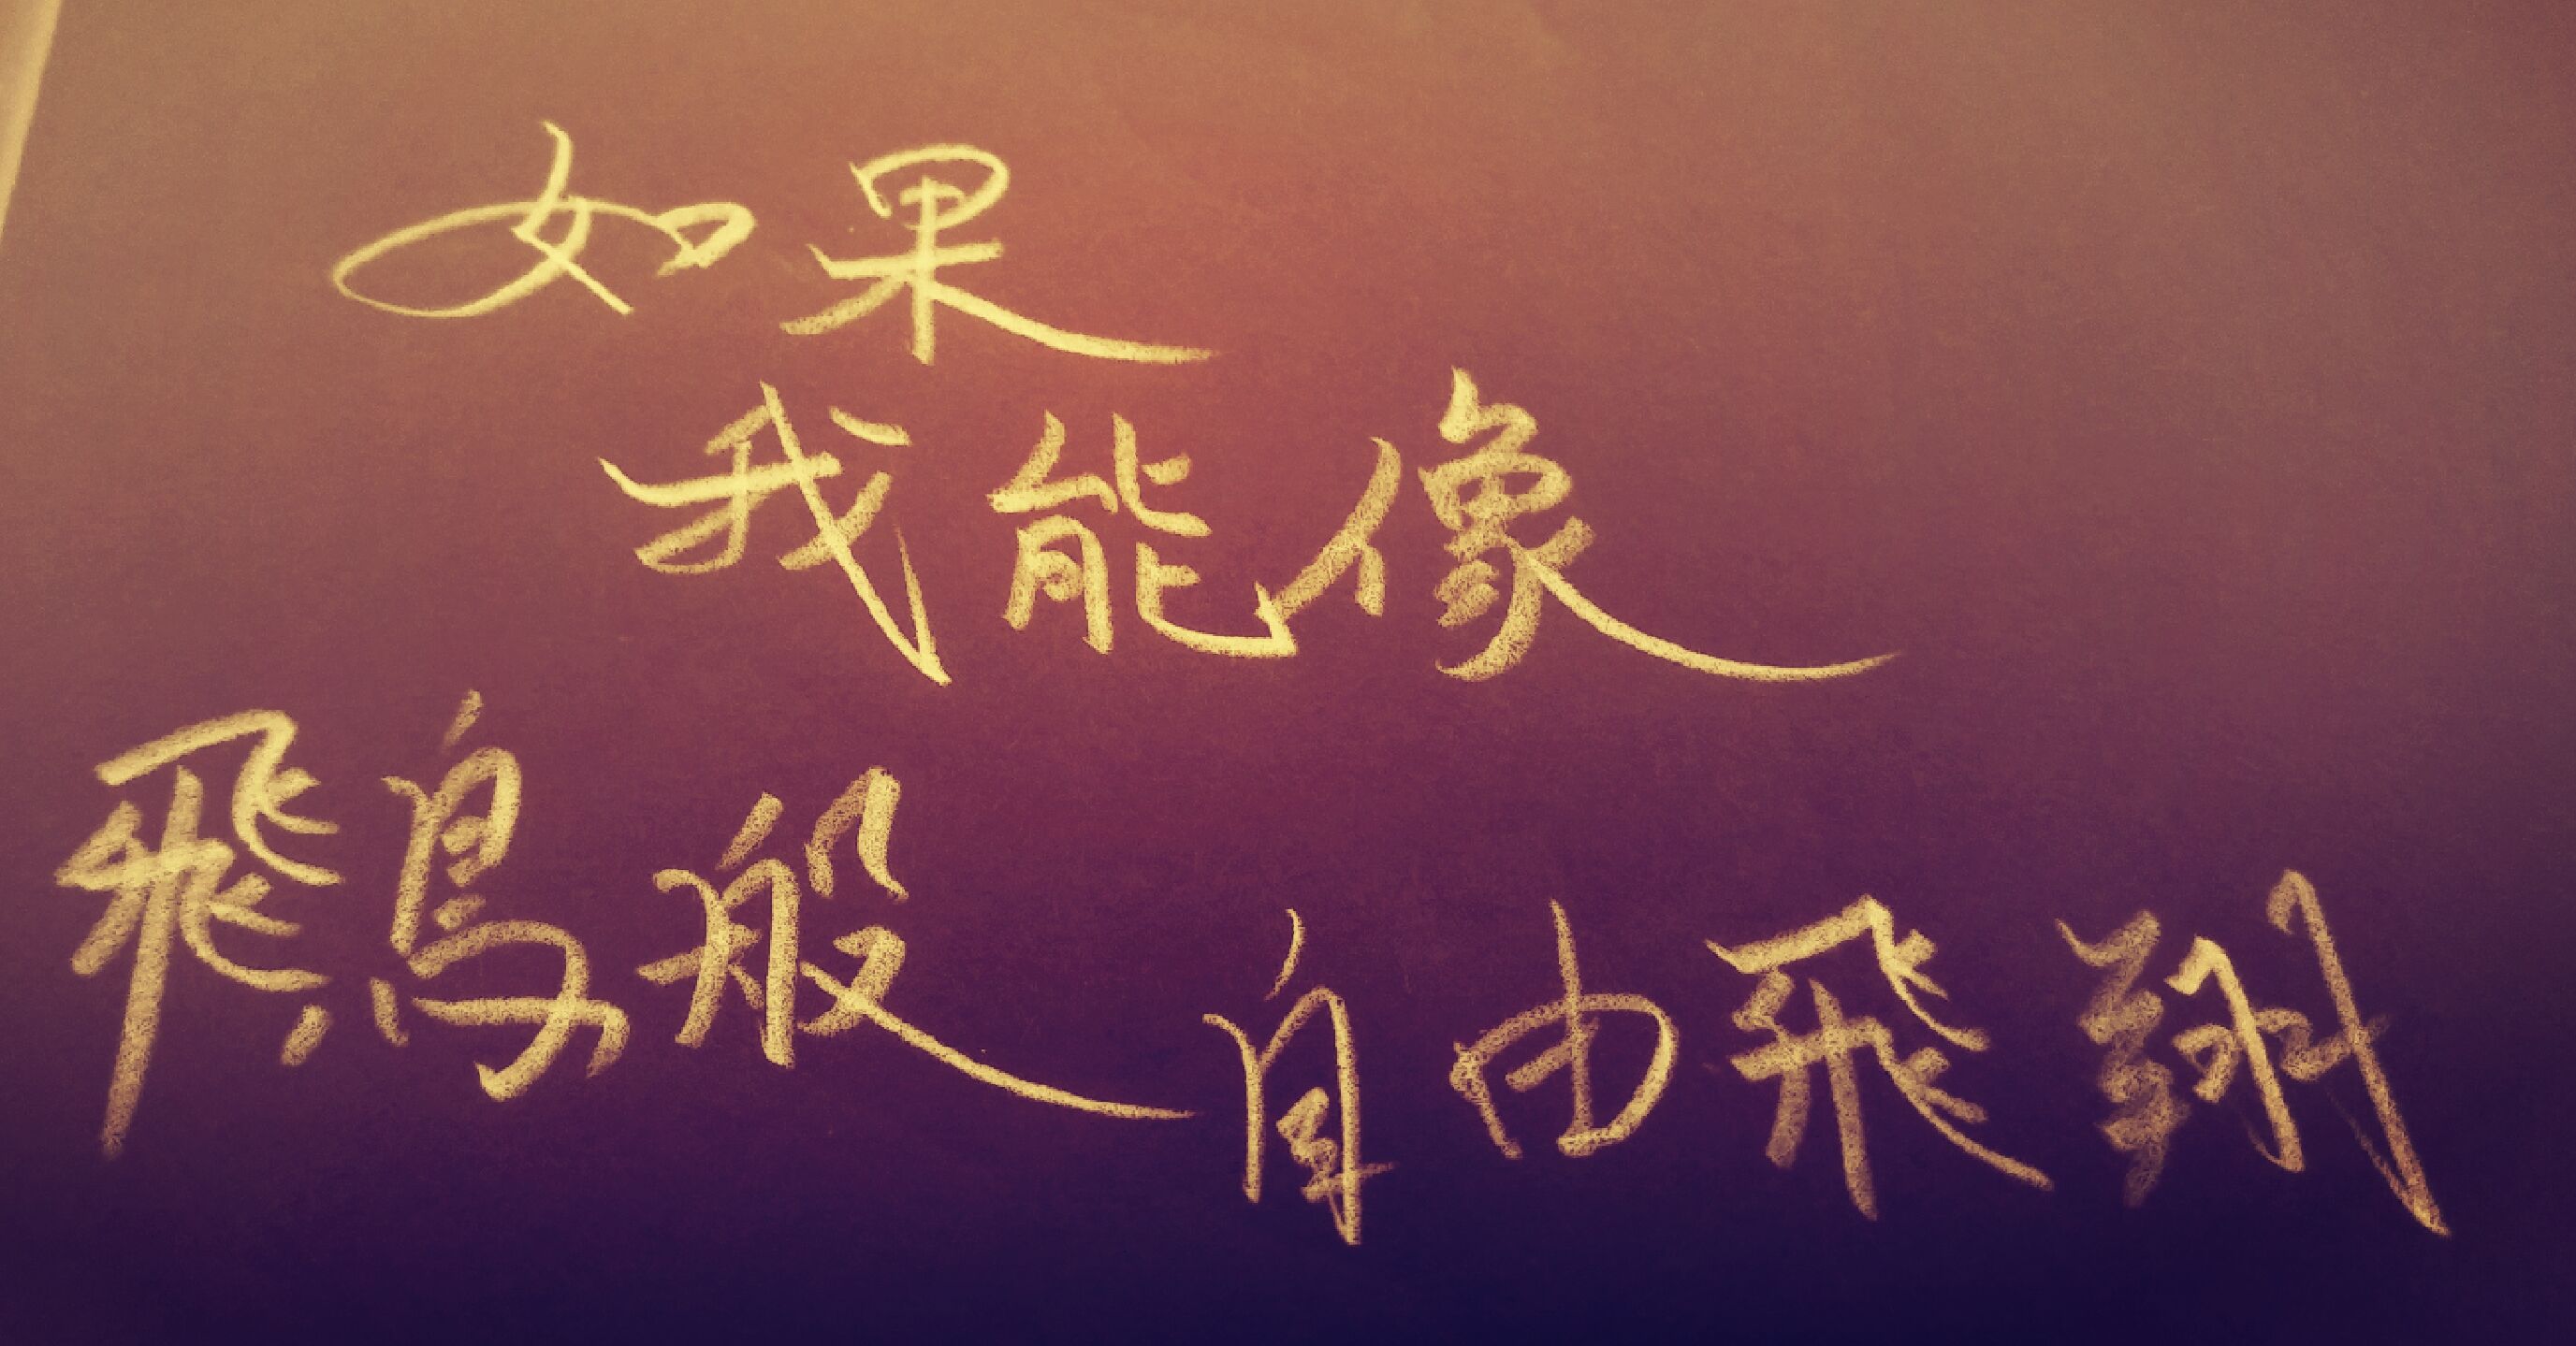 如果
我能像
飛鳥般
自由飛翔